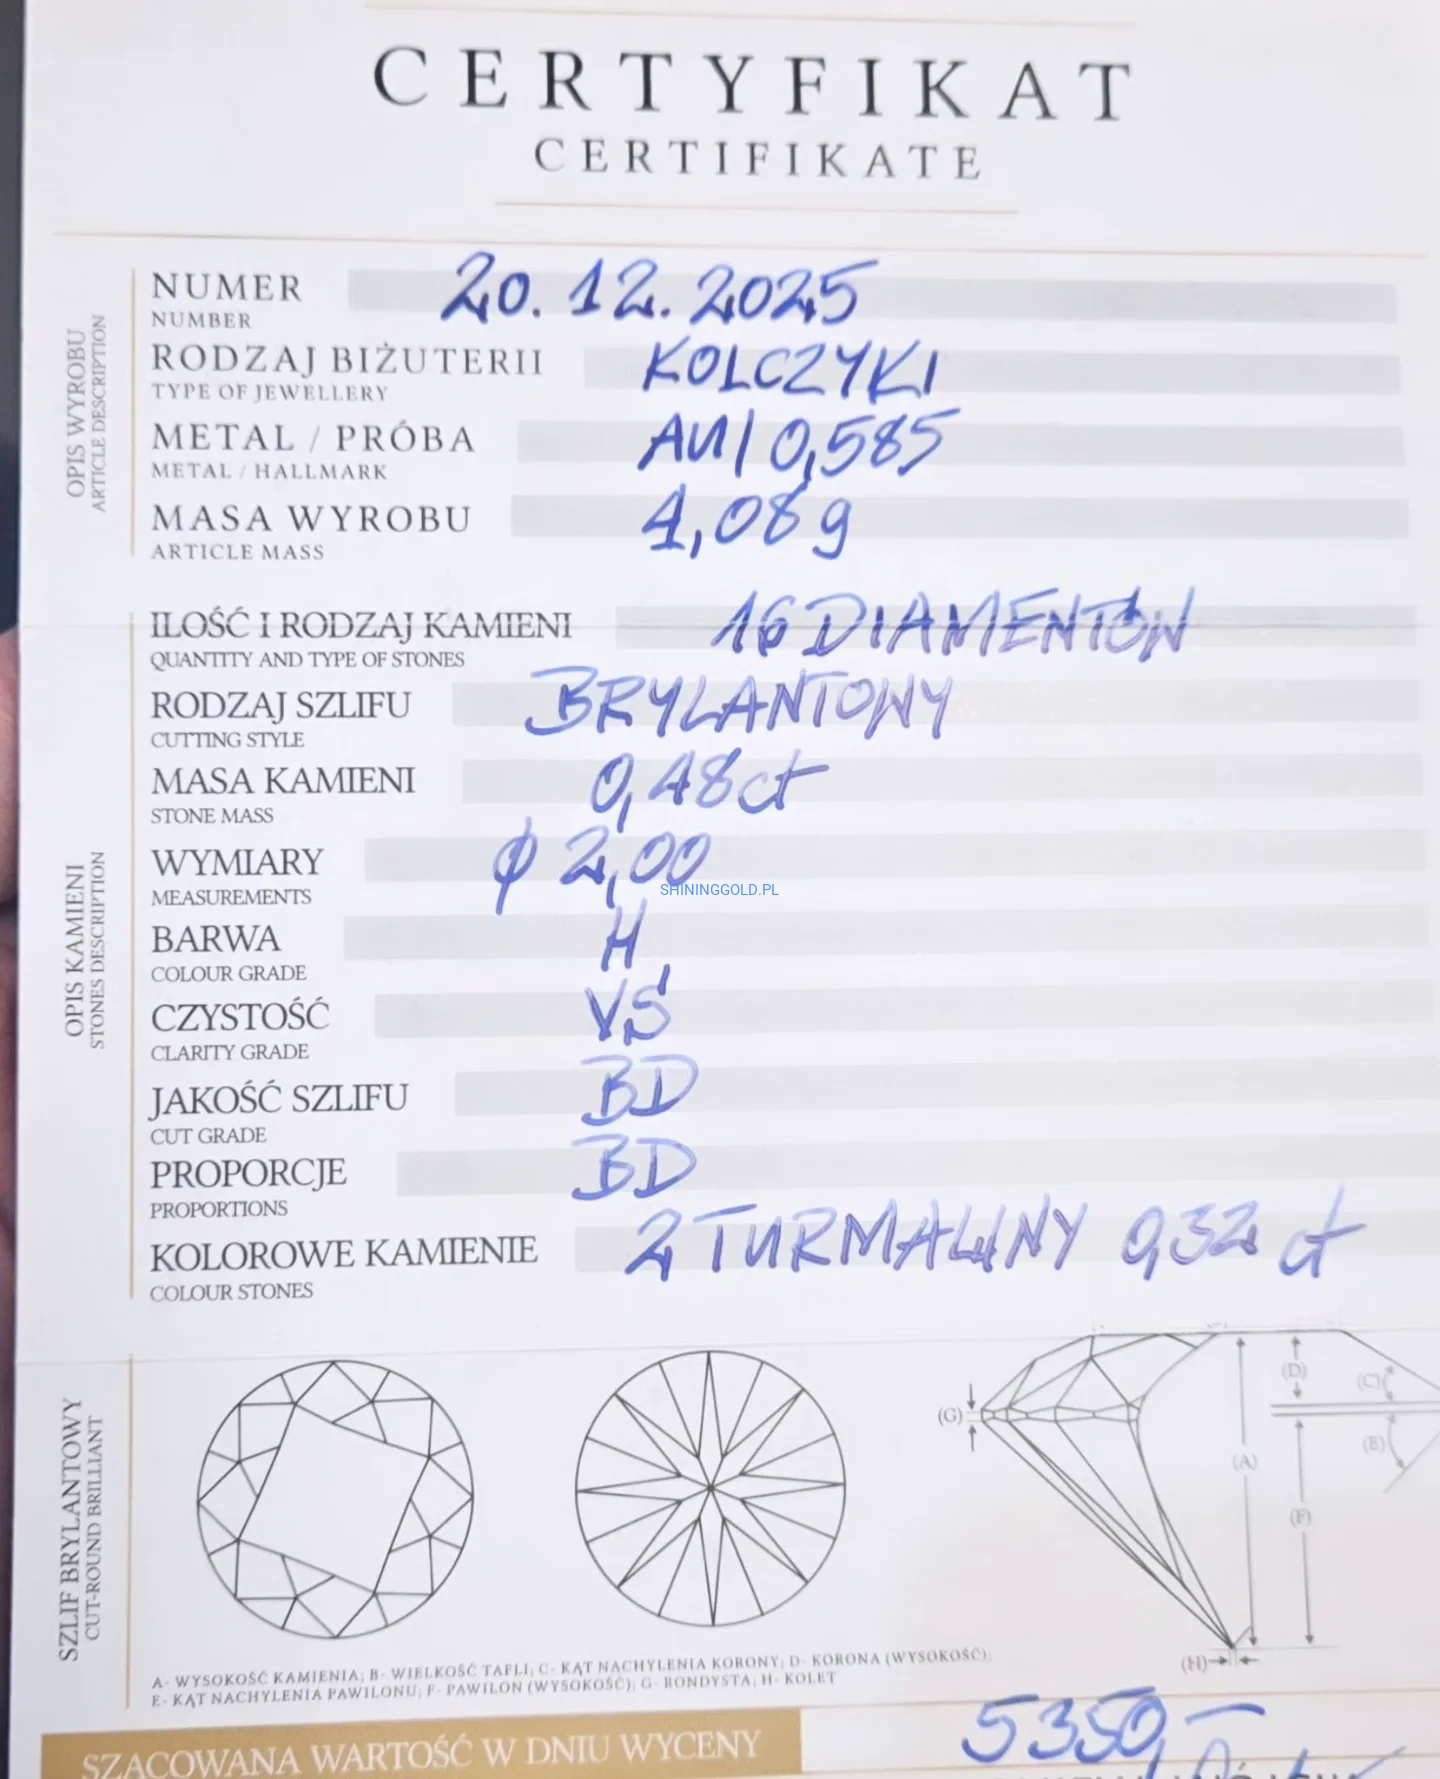 CERTYFIKAT
CERTIFIKATE
OPIS WYROBU
ARTICLE DESCRIPTION
NUMER 20.12.2025
NUMBER
RODZAJ BIŻUTERII KOLCZYKI
TYPE OF JEWELLERY
METAL / PRÓBA AU/0,585
METAL / HALLMARK
MASA WYROBU 4,08g
ARTICLE MASS
OPIS KAMIENI
STONES DESCRIPTION
ILOŚĆ I RODZAJ KAMIENI 16 DIAMENTÓW
QUANTITY AND TYPE OF STONES
RODZAJ SZLIFU BRYLANTOWY
CUTTING STYLE
MASA KAMIENI 0,48ct
STONE MASS
WYMIARY φ 2,00
MEASUREMENTS
SHININGGOLD.PL
BARWA H
COLOUR GRADE
CZYSTOŚĆ VS
CLARITY GRADE
JAKOŚĆ SZLIFU BD
CUT GRADE
PROPORCJE BD
PROPORTIONS
KOLOROWE KAMIENIE 2 TURMALINY 0,32 ct
COLOUR STONES
SZLIF BRYLANTOWY
CUT-ROUND BRILLIANT
(G) (D) (C) (A) (E) (F) (H)
A- WYSOKOŚĆ KAMIENIA; B- WIELKOŚĆ TAFLI; C- KĄT NACHYLENIA KORONY; D- KORONA (WYSOKOŚĆ);
E- KĄT NACHYLENIA PAWILONU; F- PAWILON (WYSOKOŚĆ); G- RONDYSTA; H- KOLET
SZACOWANA WARTOŚĆ W DNIU WYCENY 5350,-